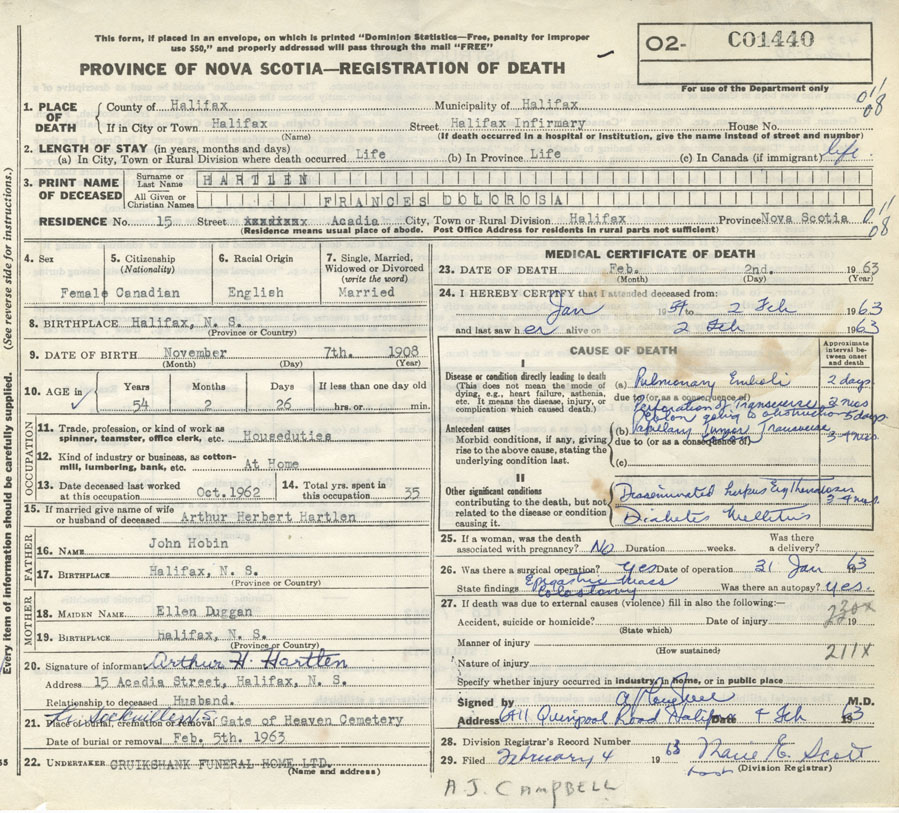 This form, if placed in an envelope, on which is printed "Dominion Statistics—Free, penalty for improper
use $50," and properly addressed will pass through the mail "FREE"
PROVINCE OF NOVA SCOTIA—REGISTRATION OF DEATH
02- C01440
For use of the Department only
1. PLACE OF DEATH
County of Halifax Municipality of Halifax
01' 08
If in City or Town Halifax Street Halifax Infirmary House No.
(Name) (If death occurred in a hospital or institution, give the name instead of street and number)
2. LENGTH OF STAY (in years, months and days)
(a) In City, Town or Rural Division where death occurred Life (b) In Province Life (c) In Canada (if immigrant) life.
3. PRINT NAME OF DECEASED
Surname or Last Name HARTLEN
All Given or Christian Names FRANCES DOLOROSA
RESIDENCE No. 15 Street Acadia City, Town or Rural Division Halifax Province Nova Scotia
(Residence means usual place of abode. Post Office Address for residents in rural parts not sufficient)
01' 08
4. Sex
Female
5. Citizenship (Nationality)
Canadian
6. Racial Origin
English
7. Single, Married, Widowed or Divorced (write the word)
Married
8. BIRTHPLACE Halifax, N. S.
(Province or Country)
9. DATE OF BIRTH November 7th. 1908
(Month) (Day) (Year)
10. AGE in Years Months Days If less than one day old
54 2 26 hrs. or min.
OCCUPATION
11. Trade, profession, or kind of work as
spinner, teamster, office clerk, etc. Houseduties
12. Kind of industry or business, as cotton-
mill, lumbering, bank, etc. At Home
13. Date deceased last worked
at this occupation Oct.1962
14. Total yrs. spent in
this occupation 35
15. If married give name of wife
or husband of deceased Arthur Herbert Hartlen
FATHER
16. NAME John Hobin
17. BIRTHPLACE Halifax, N. S.
(Province or Country)
MOTHER
18. MAIDEN NAME Ellen Duggan
19. BIRTHPLACE halifax, N. S.
(Province or Country)
20. Signature of informant Arthur H. Hartlen
Address 15 Acadia Street, Halifax, N. S.
Relationship to deceased Husband.
21. Place of burial, cremation or removal Sackville N.S. Gate of Heaven Cemetery
Date of burial or removal Feb. 5th. 1963
22. UNDERTAKER CRUIKSHANK FUNERAL HOME LTD.
(Name and address)
MEDICAL CERTIFICATE OF DEATH
23. DATE OF DEATH Feb. 2nd. 1963
(Month) (Day) (Year)
24. I HEREBY CERTIFY that I attended deceased from:
Jan 19 to 2 Feb 1963
and last saw her alive on 2 Feb 1963
CAUSE OF DEATH
Approximate interval between onset and death
I
Disease or condition directly leading to death
(This does not mean the mode of
dying, e.g., heart failure, asthenia,
etc. It means the disease, injury, or
complication which caused death.)
(a) Pulmonary Emboli 2 days
due to (or as a consequence of)
Perforation of Transverse
Colon going to obstruction 5 days
Antecedent causes
Morbid conditions, if any, giving
rise to the above cause, stating the
underlying condition last.
(b) Papillary Tumor Transverse
Colon 3-4 mos.
due to (or as a consequence of)
(c)
II
Other significant conditions
contributing to the death, but not
related to the disease or condition
causing it.
Disseminated Lupus Erythematosus 3-4 mos.
Diabetes Mellitus
25. If a woman, was the death
associated with pregnancy? No Duration weeks. Was there a delivery?
26. Was there a surgical operation? yes Date of operation 31 Jan 63
State findings Epigastric Mass
Colostomy Was there an autopsy? yes.
27. If death was due to external causes (violence) fill in also the following:—
230x
Accident, suicide or homicide? Date of injury 19
(State which)
Manner of injury
(How sustained)
211x
Nature of injury
Specify whether injury occurred in industry, in home, or in public place
Signed by M.D.
Address 6411 Quinpool Road Halifax Date 4 Feb 1963
28. Division Registrar's Record Number
29. Filed February 4 1963 Marie E. Scott
(Division Registrar)
A.J. CAMPBELL
Every item of information should be carefully supplied. (See reverse side for instructions.)
55